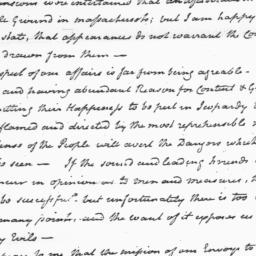 were entertained that
le Ground in massachusets; but I am happy
state, that appearances do not warrant the Con
drawn from them —
spect of our affairs is far from being agreable —
and having abundant Reason for Content & G
utting their Happiness to be put in Jeopardy
flamed and directed by the most reprehensible
ense of the People will avert the Dangers which
be seen — If the sound and leading Friends
ncur in opinion as to men and measures,
be successful: but unfortunately there is too
many points, and the want of it exposes us
y Evils —
to me that the mission of our Envoys to